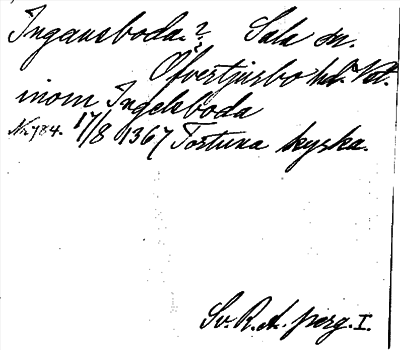 Ingansboda? Sala sn.
Öfvertjurbo hd. Vstl.
inom Ingelsboda
No 784. 17/8 1367 Tortuna kyrka.
Sv. R. A. perg. I.